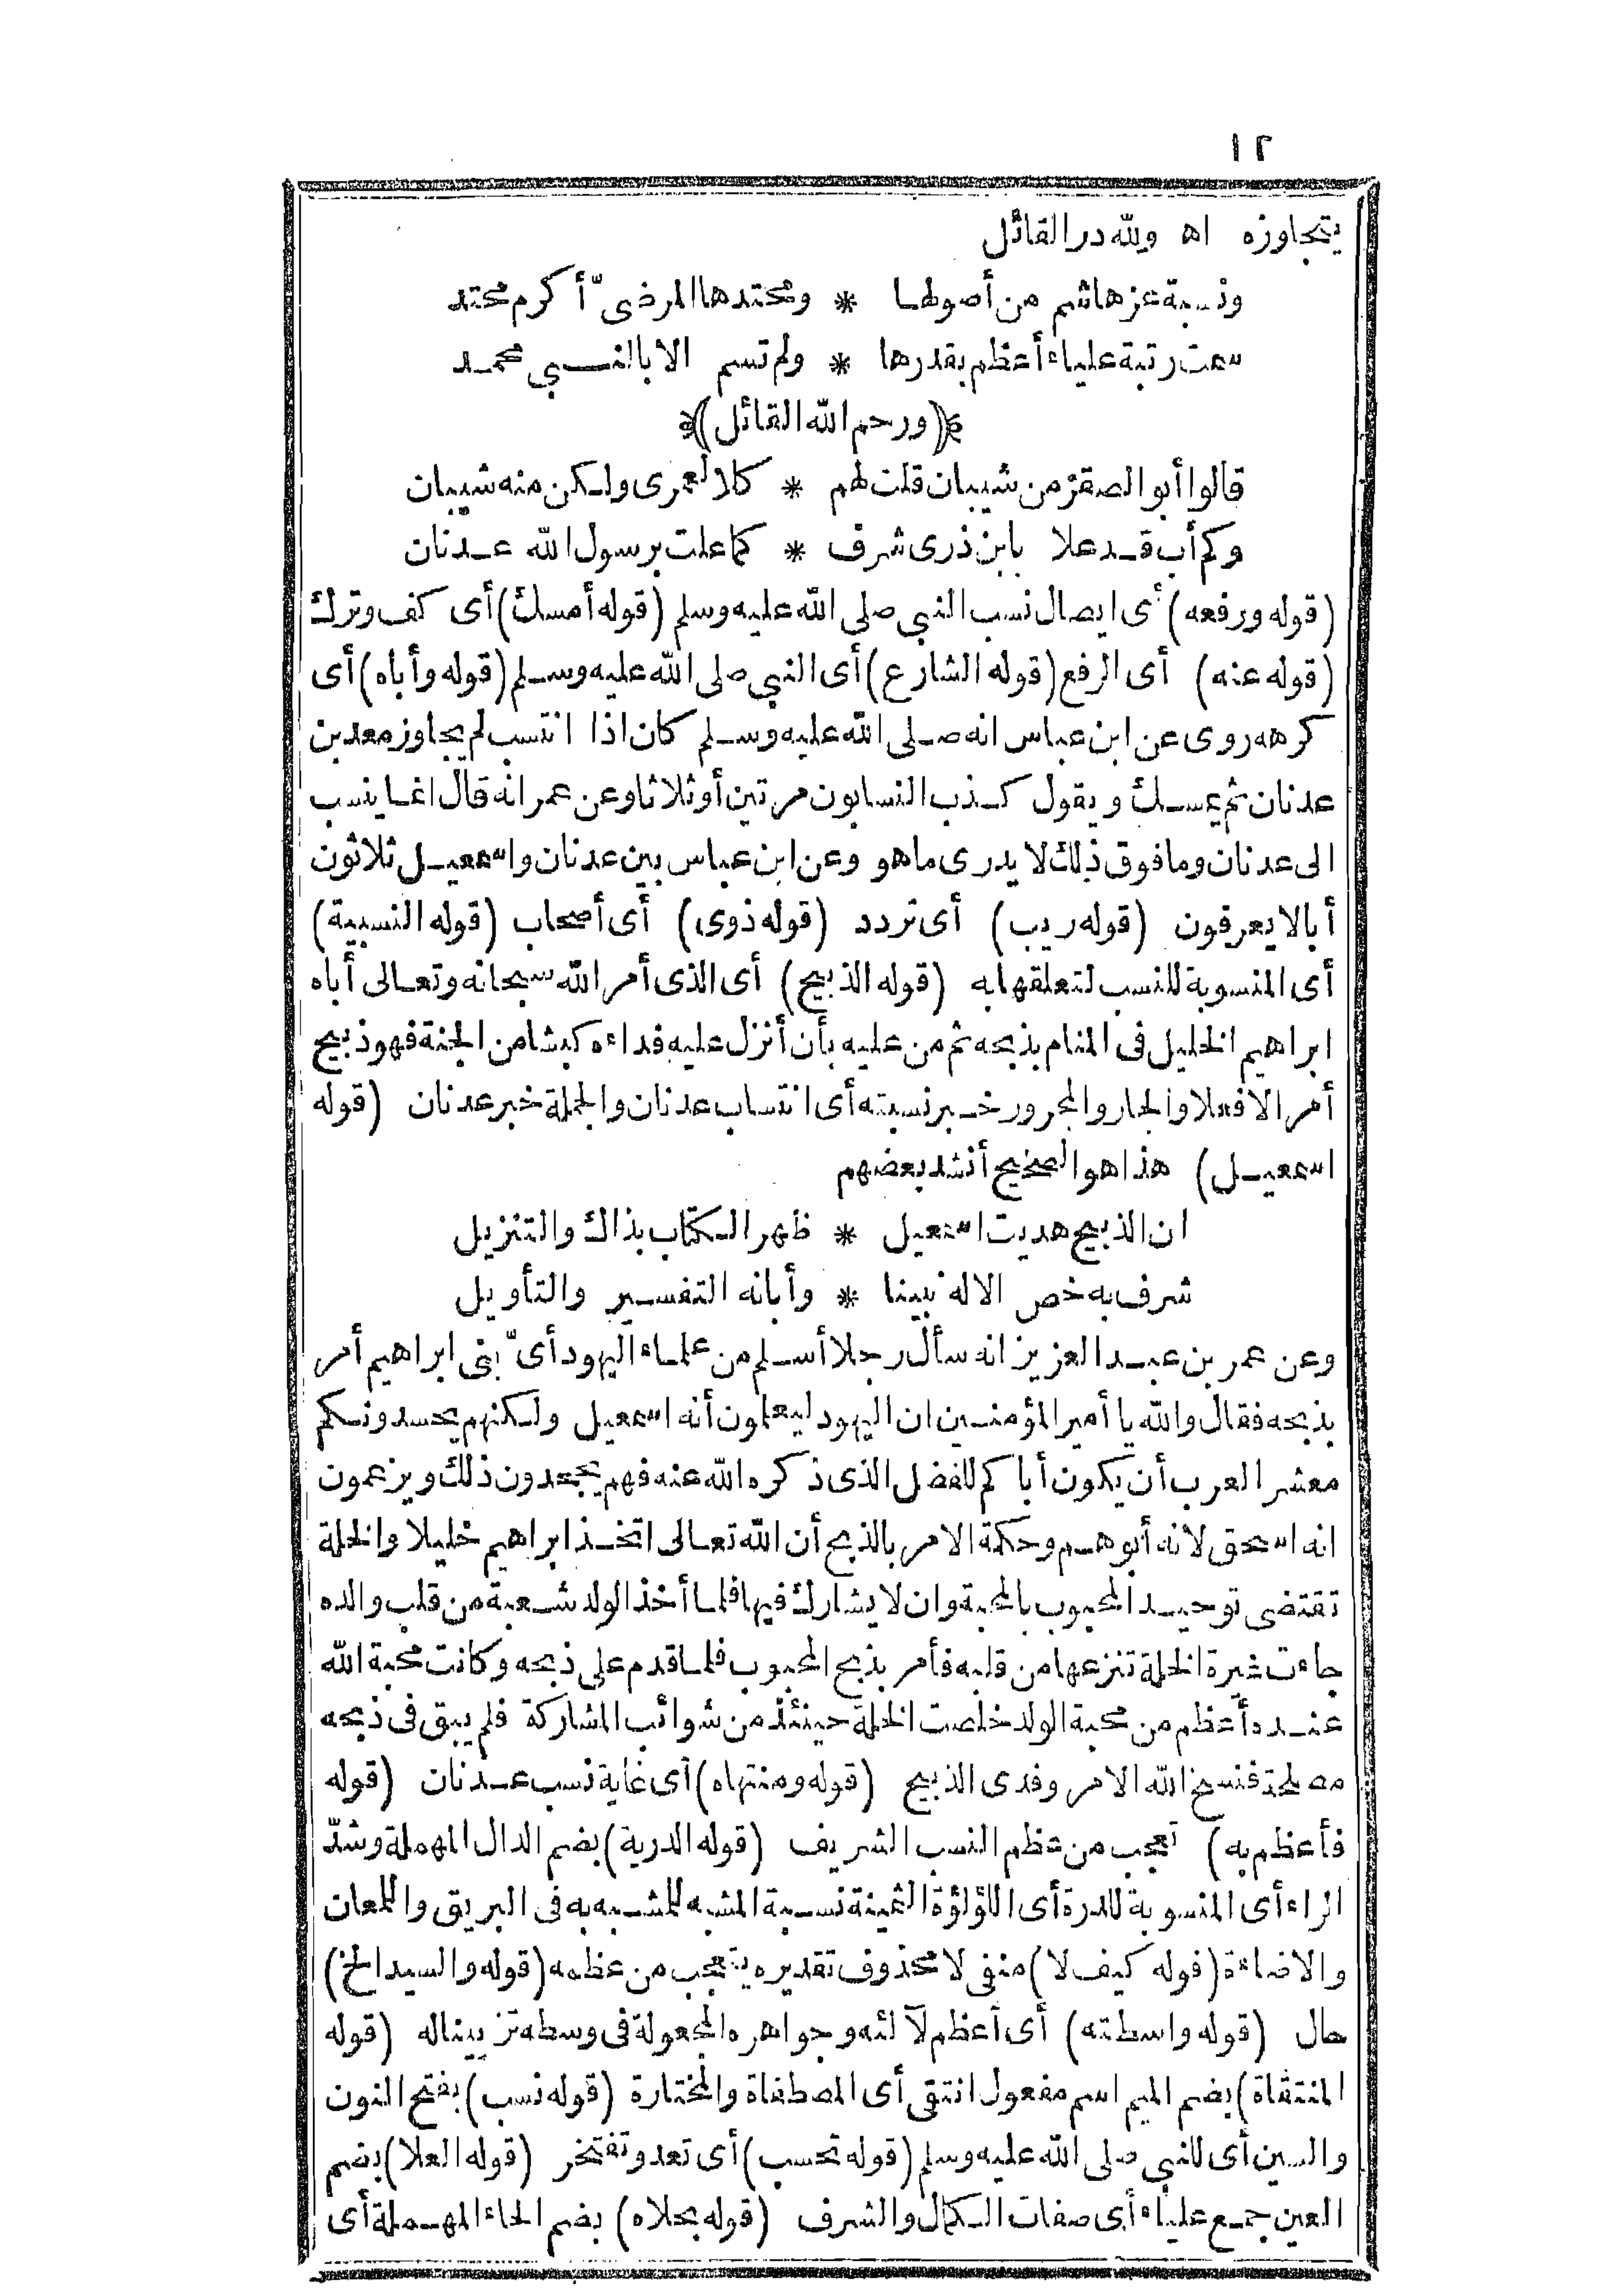 ١٢
يتجاوزه اه ولله در القائل
ونسبة عز هاشم من أصولها * ومحتدها المرضىّ أكرم محتد
سمت رتبة علياء أعظم بقدرها * ولم تسم الا بالنبي محمد
﴿(ورحم الله القائل)﴾
قالوا أبو الصقر من شيبان قلت لهم * كلا لعمرى ولكن منه شيبان
وكم أب قد علا بابن ذرى شرف * كما علت برسول الله عدنان
(قوله ورفعه) أى ايصال نسب النبي صلى الله عليه وسلم (قوله أمسك) أى كف وترك
(قوله عنه) أى الرفع (قوله الشارع) أى النبي صلى الله عليه وسلم (قوله وأباه) أى
كرهه روى عن ابن عباس انه صلى الله عليه وسلم كان اذا انتسب لم يجاوز معد بن
عدنان ثم يمسك ويقول كذب النسابون مرتين أو ثلاثا وعن عمر انه قال انما ينسب
الى عدنان وما فوق ذلك لا يدرى ما هو وعن ابن عباس بين عدنان واسمعيل ثلاثون
أبا لا يعرفون (قوله ريب) أى تردد (قوله ذوى) أى أصحاب (قوله النسبية)
أى المنسوبة للنسب لتعلقها به (قوله الذبيح) أى الذى أمر الله سبحانه وتعالى أباه
ابراهيم الخليل فى المنام بذبحه ثم من عليه بأن أنزل عليه فداءه كبشا من الجنة فهو ذبيح
أمرا لا فعلا والجار والمجرور خبر نسبته أى انتساب عدنان والجملة خبر عدنان (قوله
اسمعيل) هذا هو الصحيح أنشد بعضهم
ان الذبيح هديت اسمعيل * ظهر الكتاب بذاك والتنزيل
شرف به خص الاله نبينا * وأبانه التفسير والتأويل
وعن عمر بن عبد العزيز انه سأل رجلا أسلم من علماء اليهود أىّ بنى ابراهيم أمر
بذبحه فقال والله يا أمير المؤمنين ان اليهود ليعلمون أنه اسمعيل ولكنهم يحسدونكم
معشر العرب أن يكون أباكم للفضل الذى ذكره الله عنه فهم يجحدون ذلك ويزعمون
انه اسحق لانه أبوهم وحكمة الامر بالذبح أن الله تعالى اتخذ ابراهيم خليلا والخلة
تقتضى توحيد المحبوب بالمحبة وان لا يشارك فيها فلما أخذ الولد شعبة من قلب والده
جاءت غيرة الخلة تنزعها من قلبه فأمر بذبح المحبوب فلما قدم على ذبحه وكانت محبة الله
عنده أعظم من محبة الولد خلصت الخلة حينئذ من شوائب المشاركة فلم يبق فى ذبحه
مصلحة فنسخ الله الامر وفدى الذبيح (قوله ومنتهاه) أى غاية نسب عدنان (قوله
فأعظم به) تعجب من عظم النسب الشريف (قوله الدرية) بضم الدال المهملة وشدّ
الراء أى المنسوبة للدرة أى اللؤلؤة الثمينة نسبة المشبه للمشبه به فى البريق واللمعان
والاضاءة (قوله كيف لا) منفى لا محذوف تقديره يتعجب من عظمه (قوله والسيد الخ)
حال (قوله واسطته) أى أعظم لآلئه وجواهره المجعولة فى وسطه تزيينا له (قوله
المنتقاة) بضم الميم اسم مفعول انتقى أى المصطفاة والمختارة (قوله نسب) بفتح النون
والسين أى للنبي صلى الله عليه وسلم (قوله تحسب) أى تعد وتفتخر (قوله العلا) بضم
العين جمع علياء أى صفات الكمال والشرف (قوله بحلاه) بضم الحاء المهملة أى